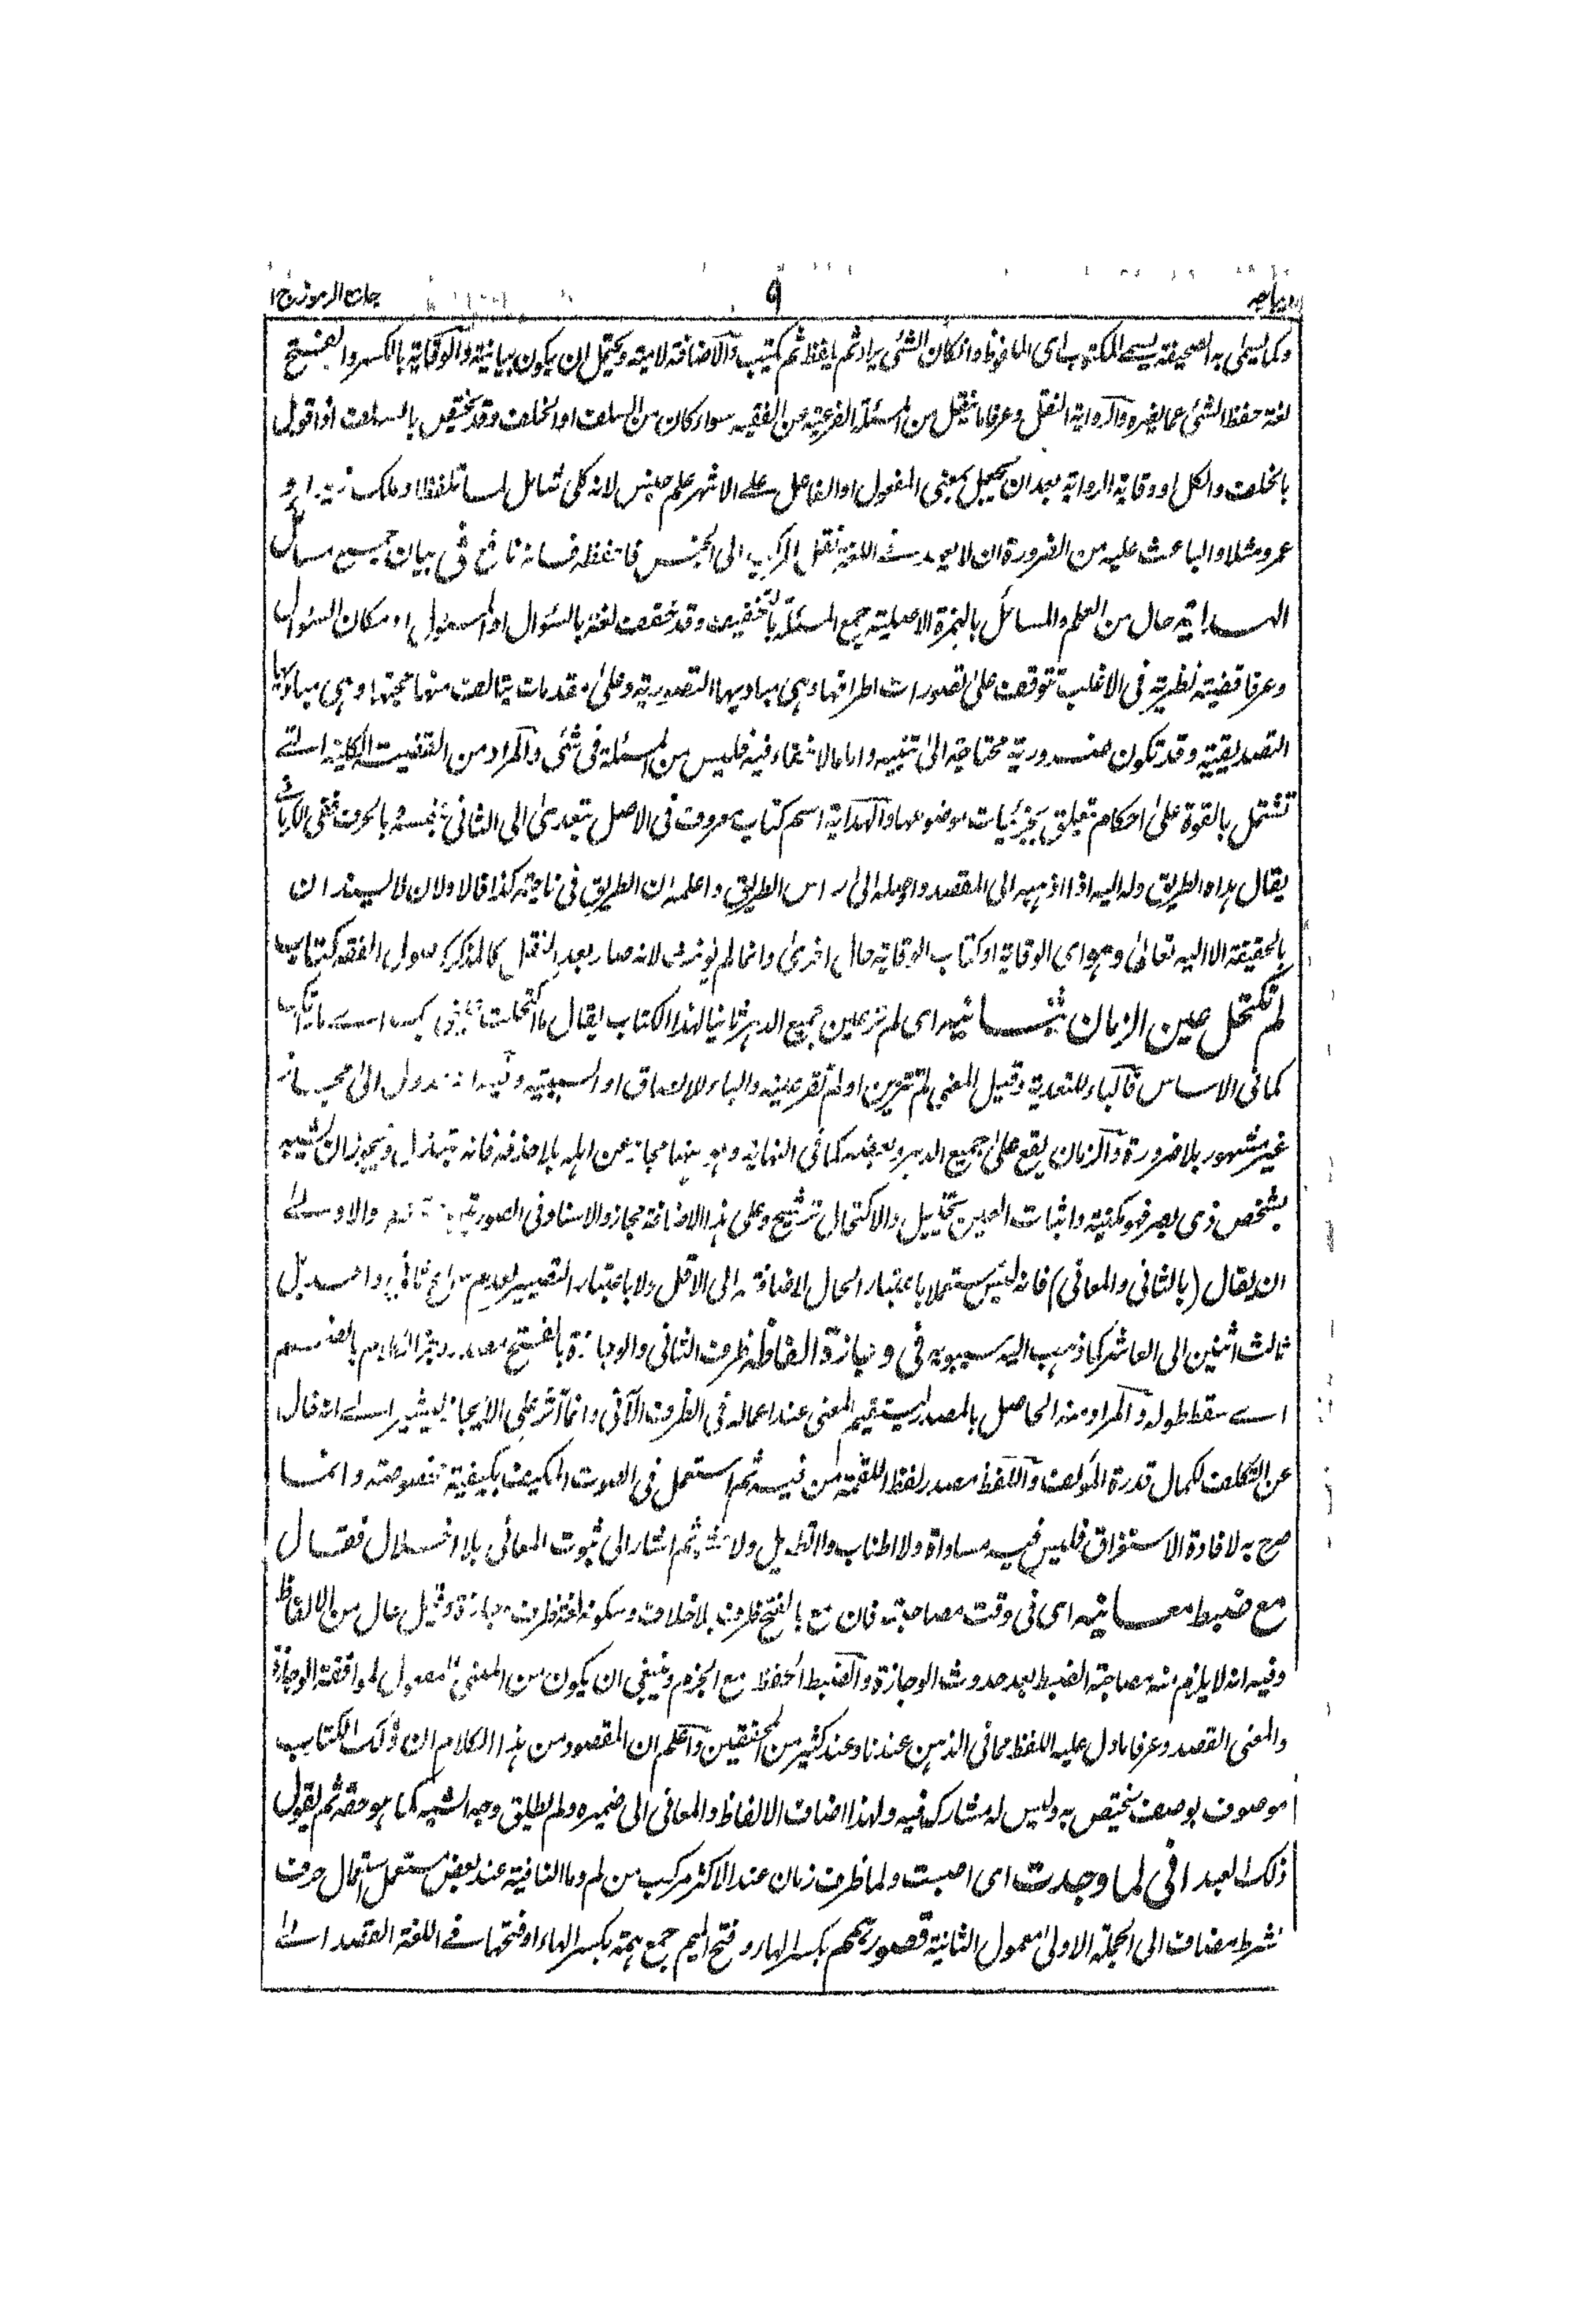 ديباجه ٩ جامع الرموز ج ١
وكما يسمى به الصحيفة يسمى المكتوب اى الملفوظ وان كان الشئ يراد ثم يلفظ ثم يكتب والاضافة لامية ويحتمل ان يكون بيانية والوقاية بالكسر والفتح
لغة حفظ الشئ عما يضره والرواية النقل وعرفا ما ينقل من المسئلة الفرعية عن الفقيه سواء كان من السلف او الخلف وقد يختص بالسلف اذا قوبل
بالخلف والكل او وقاية الرواية بعد ان يجعل بمعنى المفعول او الفاعل على الاشهر علم جنس لانه كلى شامل لما تلفظ او ملك زيد او
عمرو مثلا والباعث عليه من الضرورة ان لا يوجد فى اللغة نقل المركب الى الجنس فاحفظه فانه نافع فى بيان جميع مسائل
الهداية حال من العلم والمسائل بالهمزة الاصلية جمع المسئلة بالتخفيف وقد حققت لغة بالسؤال او المسئول او مكان السؤال
وعرفا قضية نظرية فى الاغلب تتوقف على تصورات اطرافها وهى مباديها التصورية وعلى مقدمات يتالف منها حجتها وهى مباديها
التصديقية وقد تكون ضرورية محتاجة الى تنبيه واما ما لا خفاء فيه فليس من المسئلة فى شئ والمراد من القضية الكلية التى
تشتمل بالقوة على احكام تتعلق بجزئيات موضوعها والهداية اسم كتاب معروف فى الاصل يتعدى الى الثانى بنفسه وبالحرف ففى الكرمانى
يقال هداه الطريق وله اليه اذا اذهبه الى المقصد واوصله الى راس الطريق واعلمه ان الطريق فى ناحية كذا فالاولان لا يسندان
بالحقيقة الا اليه تعالى وهو اى الوقاية او كتاب الوقاية حال اخرى وانما لم يؤنث لانه صار بعد النقل كالمذكر كاصول الفقه كتاب
لم تكتحل عين الزمان بثانيه اى لم تر عين جميع الدهر ثانيا لهذا الكتاب يقال ما اكتحلت عينى بك اى ما رأيتك
كما فى الاساس فالباء للتعدية وقيل المعنى لم تتزين او لم تقر عينه والباء للالصاق او السببية وفيه انه عدول الى مجاز
غير مشهور بلا ضرورة والزمان يقع على جميع الدهر وبعضه كما فى النهاية وهو ههنا مجاز عن اهله بلا حذفه فانه تبدل ويجوز ان يشبه
بشخص ذى بصر فهو مكنية واثبات العين تخييل والاكتحال ترشيح وعلى هذا الاضافة مجاز والاسناد فى الصورتين والاولى
ان يقال (بالثانى والمعانى) فانه ليس مستعملا باعتبار الحال لاضافته الى الاقل ولا باعتبار التصيير لعدم سماع ثانى واحد بل
ثالث اثنين الى العاشر كما ذهب اليه سيبويه فى وجازة الفاظه ظرف الثانى والوجازة بالفتح مصدر وجز الكلام بالضم
اى سقط طوله والمراد منه الحاصل بالمصدر ليستقيم المعنى عند اعماله فى الظرف الآتى وانما آثر على الايجاز ليشير الى انه خال
عن التكلف لكمال قدرة المؤلف واللفظ مصدر لفظ اللقمة من فيه ثم استعمل فى الصوت المكيف بكيفية مخصوصة وانما
صرح به لافادة الاستغراق فليس فيه مساواة ولا اطناب ولا تطويل ولا حشو ثم اشار الى ثبوت المعانى بلا اخلال فقال
مع ضبط معانيه اى فى وقت مصاحبته فان مع بالفتح ظرف بلا خلاف وسكونه لغة ظرف وجازة وقيل حال من الالفاظ
وفيه انه لا يلزم منه مصاحبة الضبط بعد حدوث الوجازة والضبط الحفظ مع الجزم وينبغى ان يكون من المعنى للمفعول لموافقة الوجازة
والمعنى القصد وعرفا ما دل عليه اللفظ مما فى الذهن عندنا وعند كثير من المحققين واعلم ان المقصود من هذا الكلام ان ذلك الكتاب
موصوف بوصف يختص به وليس له مشارك فيه ولهذا اضاف الالفاظ والمعانى الى ضميره ولم يطلق وجه الشبه كما هو حقه ثم يقول
ذلك العبد انى لما وجدت اى اصبت ولما ظرف زمان عند الاكثر مركب من لم وما النافية عند بعض مستعمل استعمال حرف
شرط مضاف الى الجملة الاولى معمول الثانية قصور هممهم بكسر الهاء وفتح الميم جمع همة بكسر الهاء او فتحها فى اللغة القصد الى